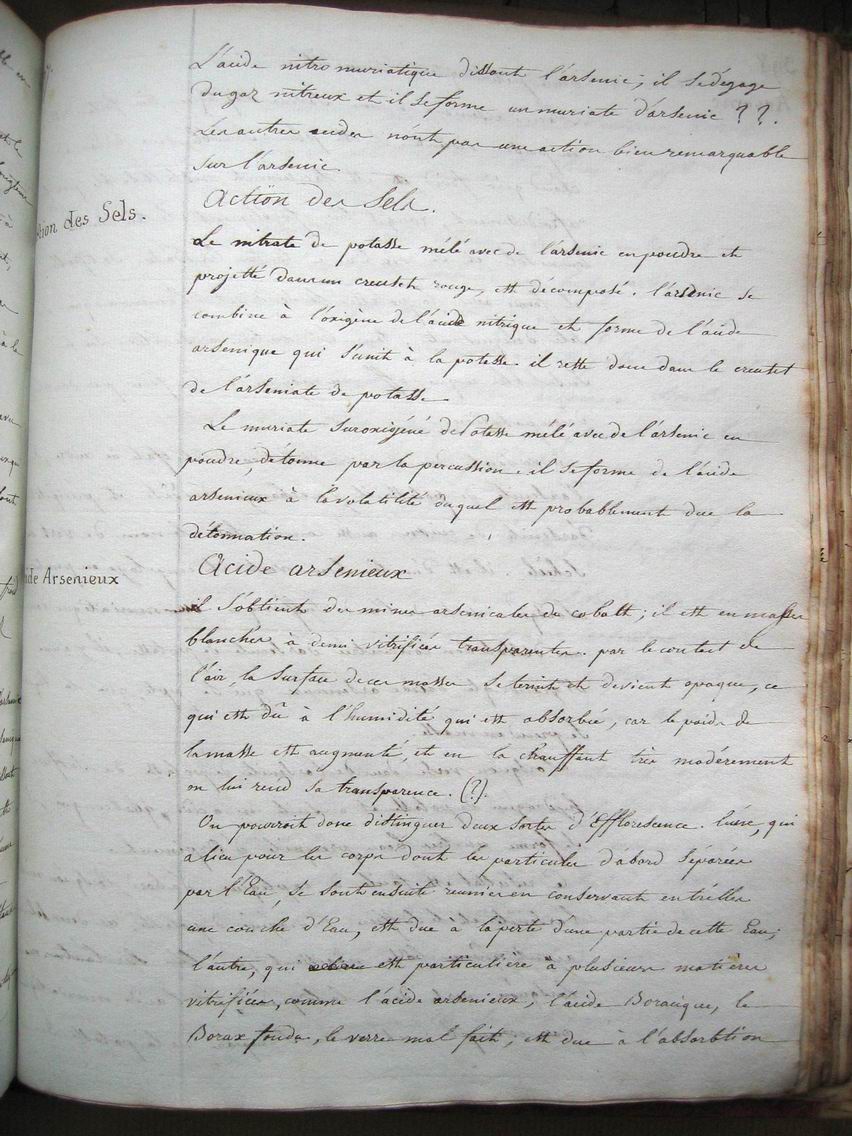 L'acide nitro muriatique dissout l'arsenic; il se dégage
du gaz nitreux et il se forme un muriate d'arsenic ??.
Les autres acides n'ont pas une action bien remarquable
sur l'arsenic
Action des Sels.
Action des Sels.
Le nitrate de potasse mélé avec de l'arsenic en poudre et
projetté dans un creuset rouge, est décomposé. l'arsenic se
combine à l'oxigène de l'acide nitrique et forme de l'acide
arsenique qui s'unit à la potasse. il reste donc dans le creuset
de l'arseniate de potasse
Le muriate suroxigéné de Potasse mélé avec de l'arsenic en
poudre, détonne par la percussion. il se forme de l'acide
arsenieux à la volatilité duquel est probablement due la
détonnation.
Acide arsenieux
ide Arsenieux
il s'obtient des mines arsenicales de cobalt; il est en masses
blanches à demi vitrifiées transparentes. par le contact de
l'air, la surface de ces masses se ternit et devient opaque, ce
qui est dû à l'humidité qui est absorbée, car le poids de
la masse est augmenté, et en la chauffant très modérement
on lui rend sa transparence. (?).
On pourroit donc distinguer deux sortes d'Efflorescence. l'une, qui
a lieu pour les corps dont les particules d'abord séparées
par l'Eau, se sont ensuite reunies en conservant entr'elles
une couche d'Eau, est due à la perte d'une partie de cette Eau;
l'autre, qui est particulière à plusieurs matières
vitrifiées, comme l'acide arsenieux, l'acide Boracique, le
Borax fondu, le verre mal fait, est due à l'absorbtion